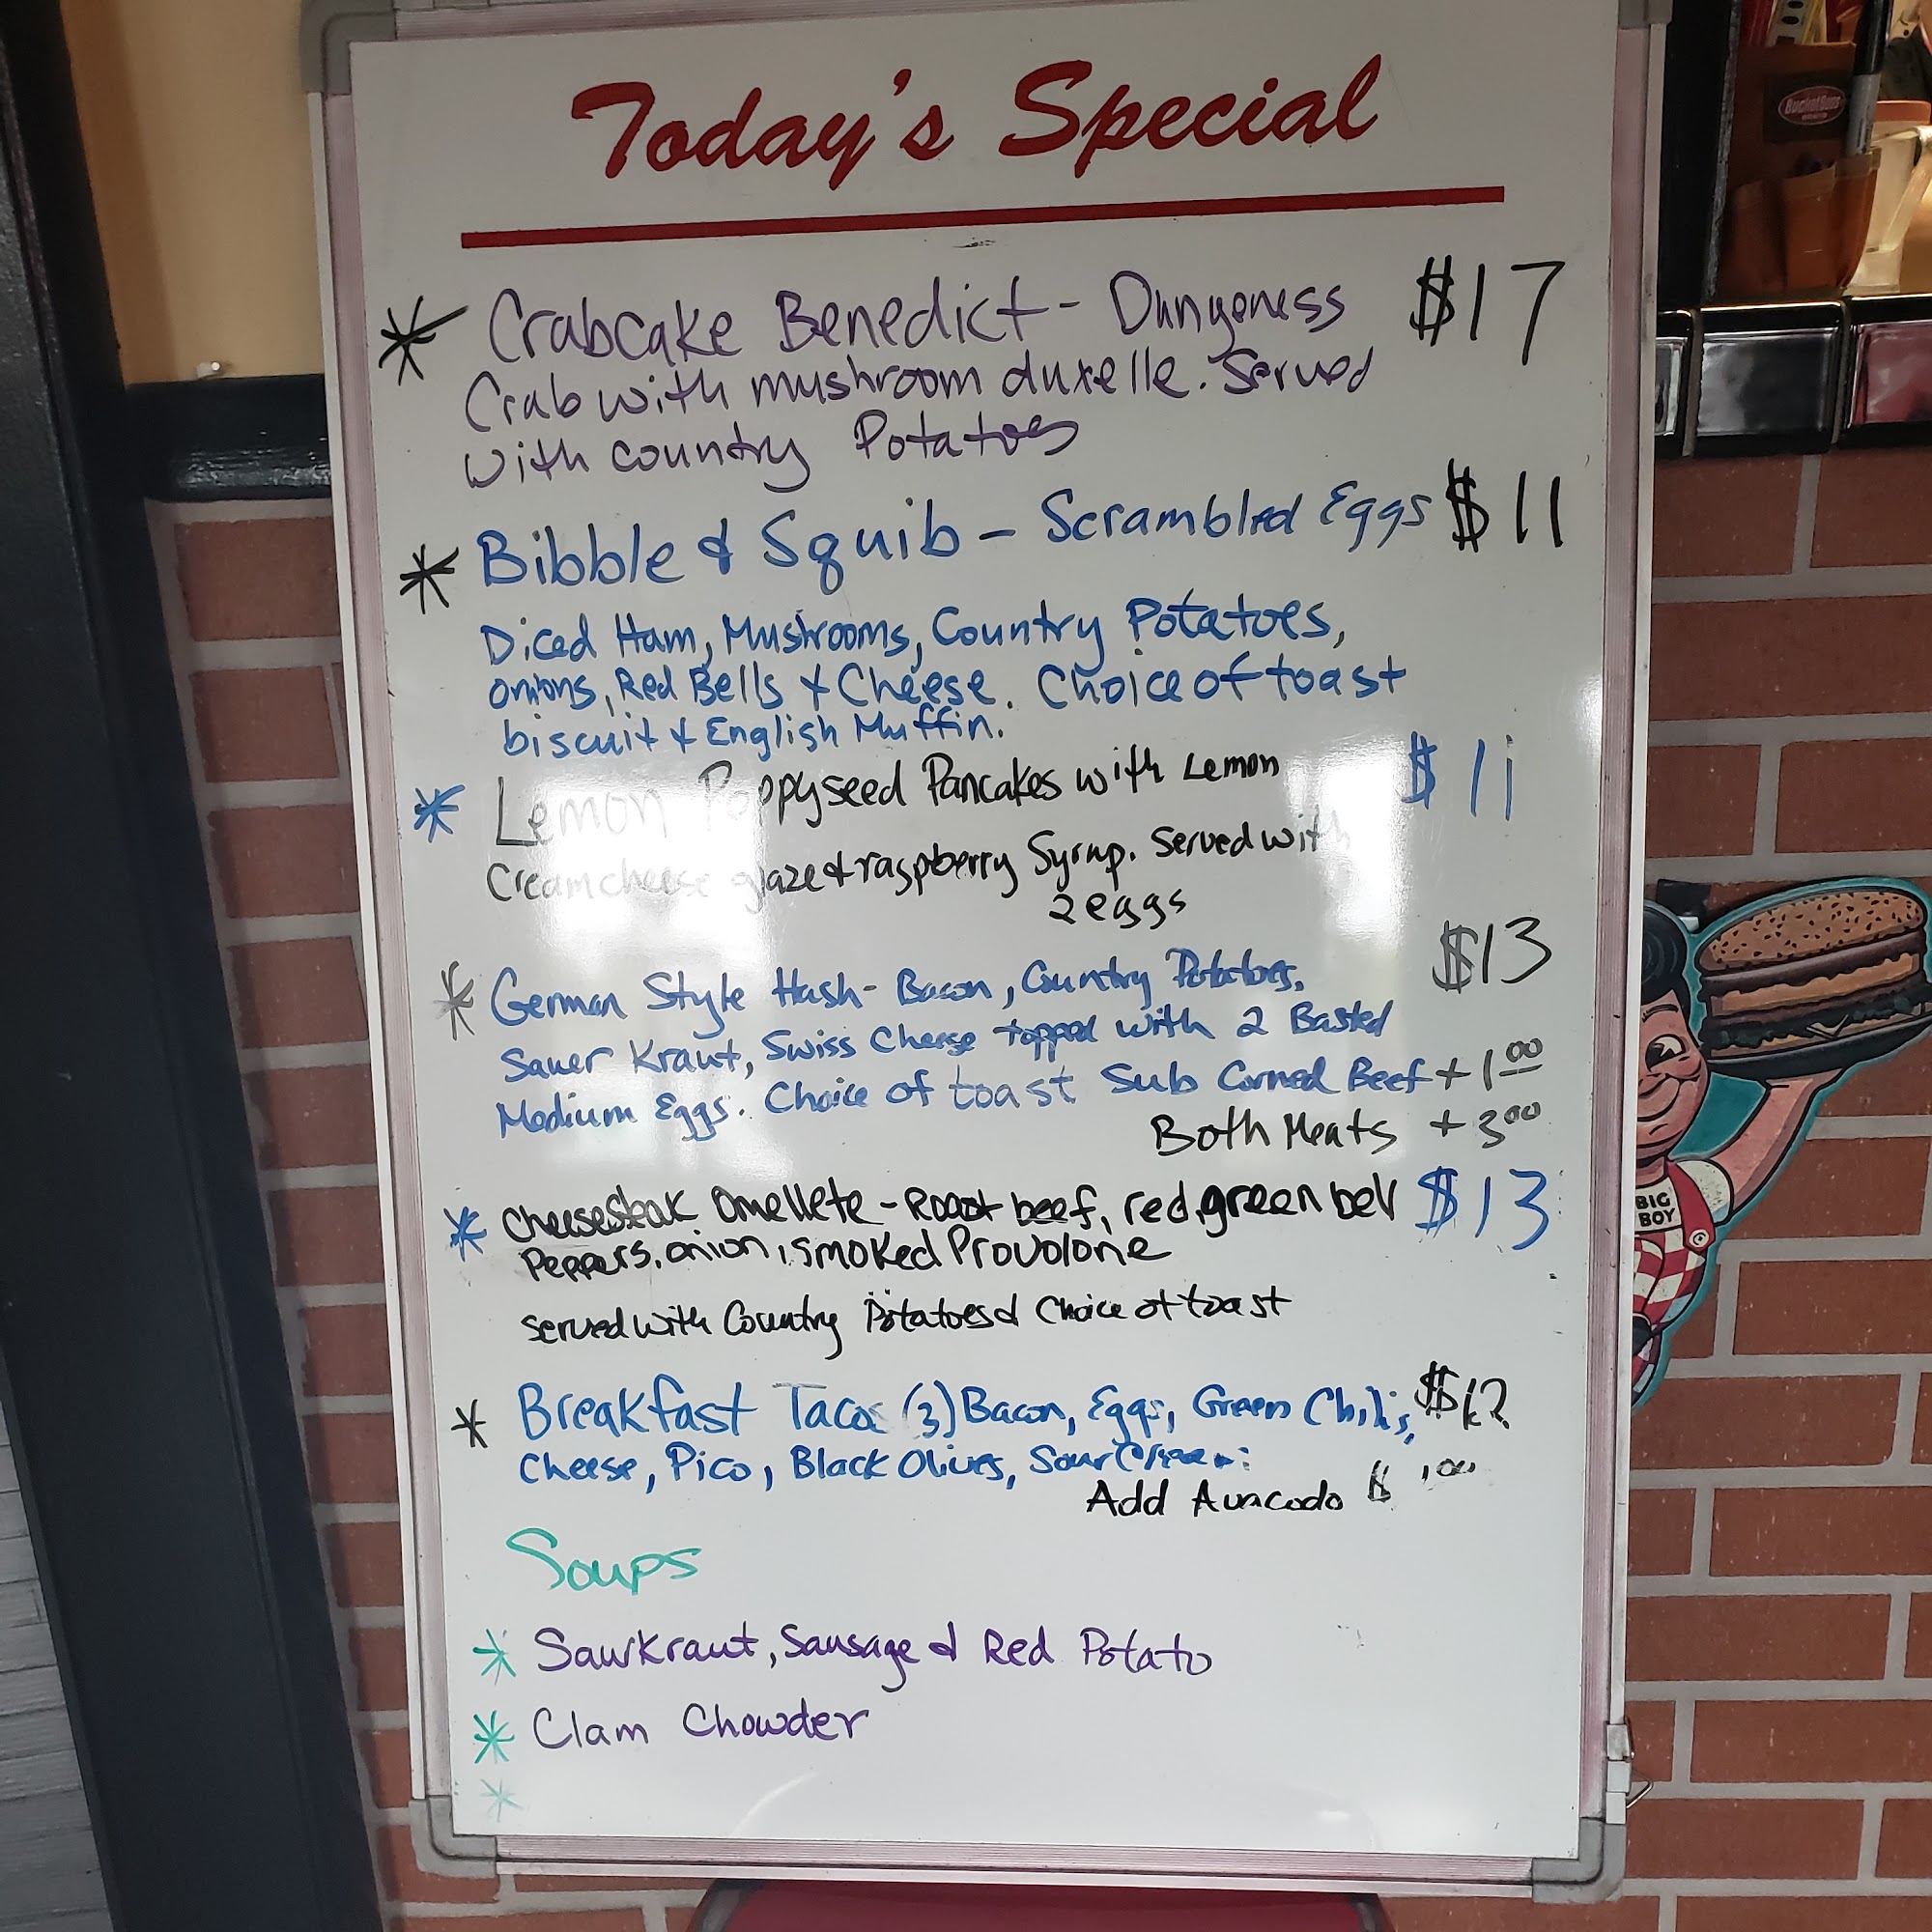 Today's Special
* Crabcake Benedict - Dungeness $17
Crab with mushroom duxelle. Served
with country Potatoes
* Bibble & Squib - Scrambled Eggs $11
Diced Ham, Mushrooms, Country Potatoes,
onions, Red Bells & Cheese. Choice of toast
biscuit & English Muffin.
* Lemon Poppyseed Pancakes with Lemon $11
Creamcheese glaze & raspberry Syrup. Served with
2 eggs
* German Style Hash - Bacon, Country Potatoes, $13
Sauer Kraut, Swiss Cheese topped with 2 Basted
Medium Eggs. Choice of toast Sub Corned Beef + 1.00
Both Meats + 3.00
* Cheesesteak Omellete - Roast beef, red, green bell $13
Peppers, onion, smoked Provolone
served with Country Potatoes & Choice of toast
* Breakfast Tacos (3) Bacon, Eggs, Green Chilis, $12
Cheese, Pico, Black Olives, Sour Cream
Add Avacodo $ .00
Soups
* Saurkraut, Sausage & Red Potato
* Clam Chowder
*
BIG
BOY